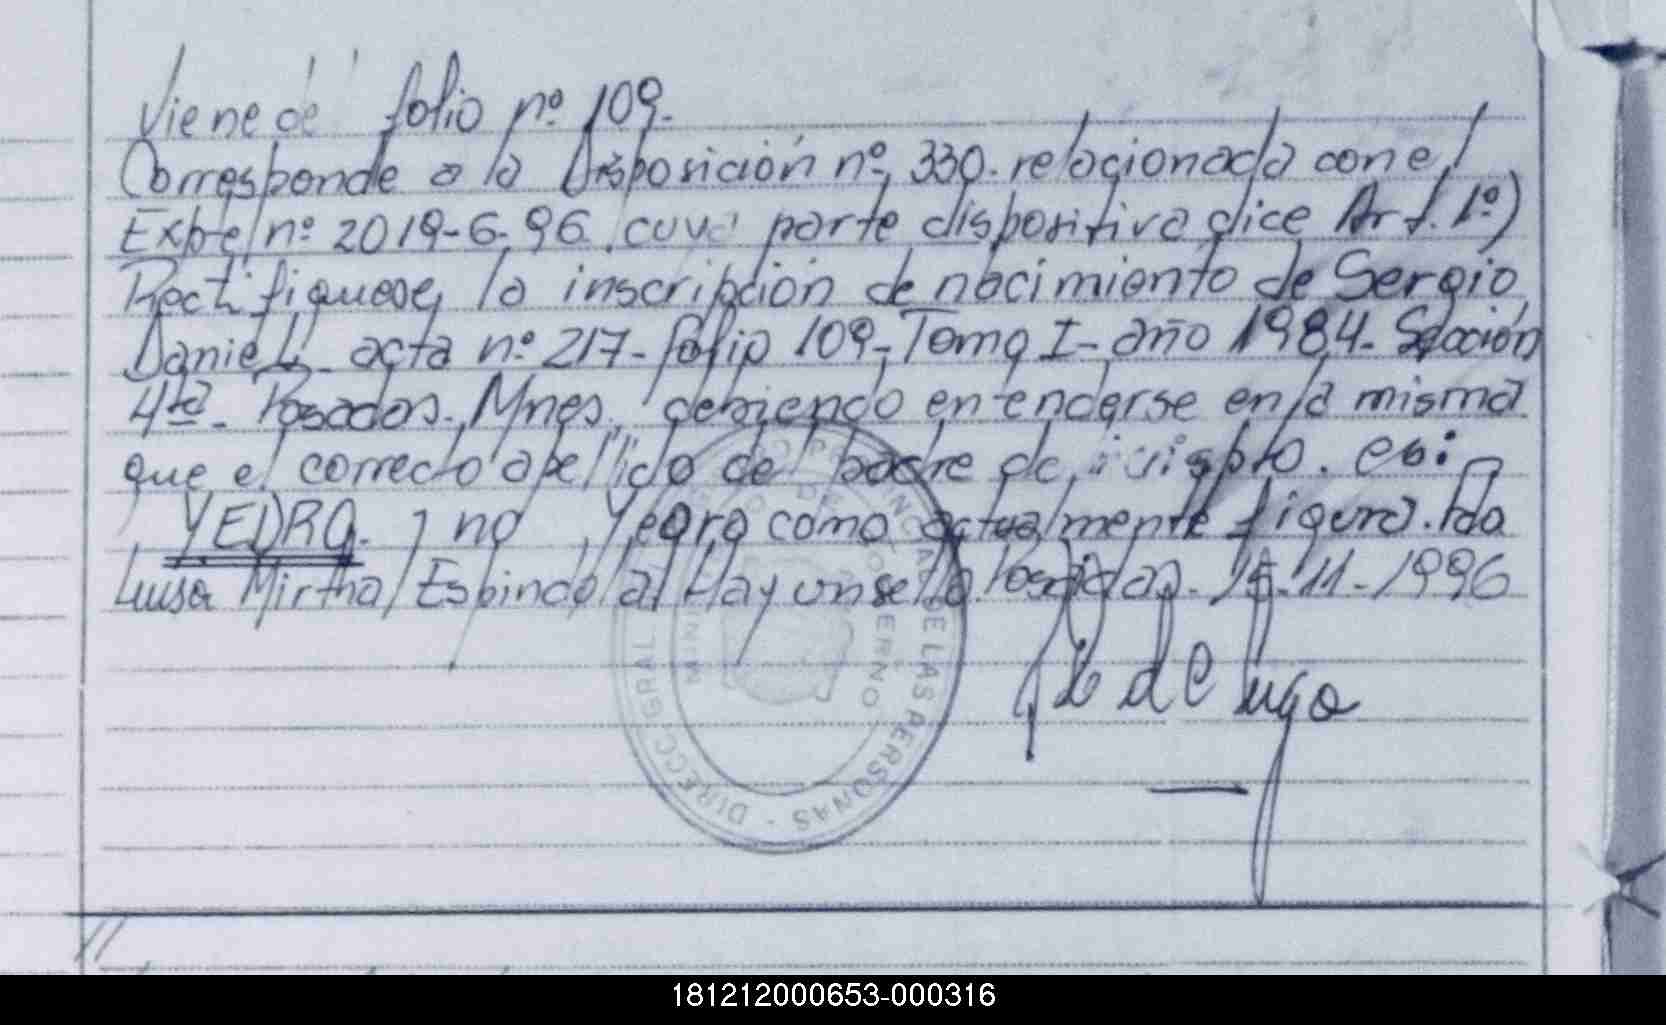 Viene de folio nº 109.
Corresponde a la Disposición nº 330. relacionada con el
Expte nº 2019-6-96. cuya parte dispositiva dice Art. 1º)
Rectifiquese, la inscripción de nacimiento de Sergio
Daniel acta nº 217- folio 109- Tomo I- año 1984- Sección
4ta- Posadas. Mnes. debiendo entenderse en la misma
que el correcto apellido del padre de inscpto. es:
YEDRO. y no Yegro como actualmente figura. Fdo
Luisa Mirtha Espindola/ Hay un sello. Posadas. 15-11-1996
de Lugo
DIRECC. GRAL DE LAS PERSONAS
GOBIERNO
181212000653-000316